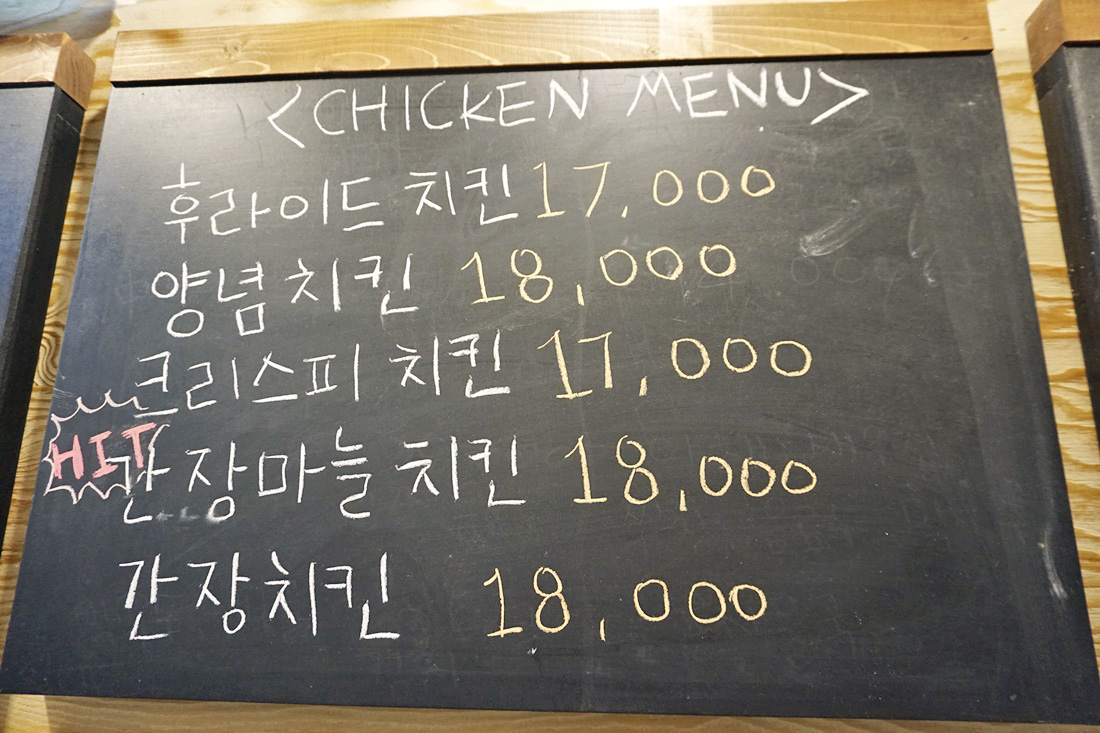 <CHICKEN MENU>
후라이드 치킨 17,000
양념치킨 18,000
크리스피 치킨 17,000
HIT
간장마늘 치킨 18,000
간장치킨 18,000